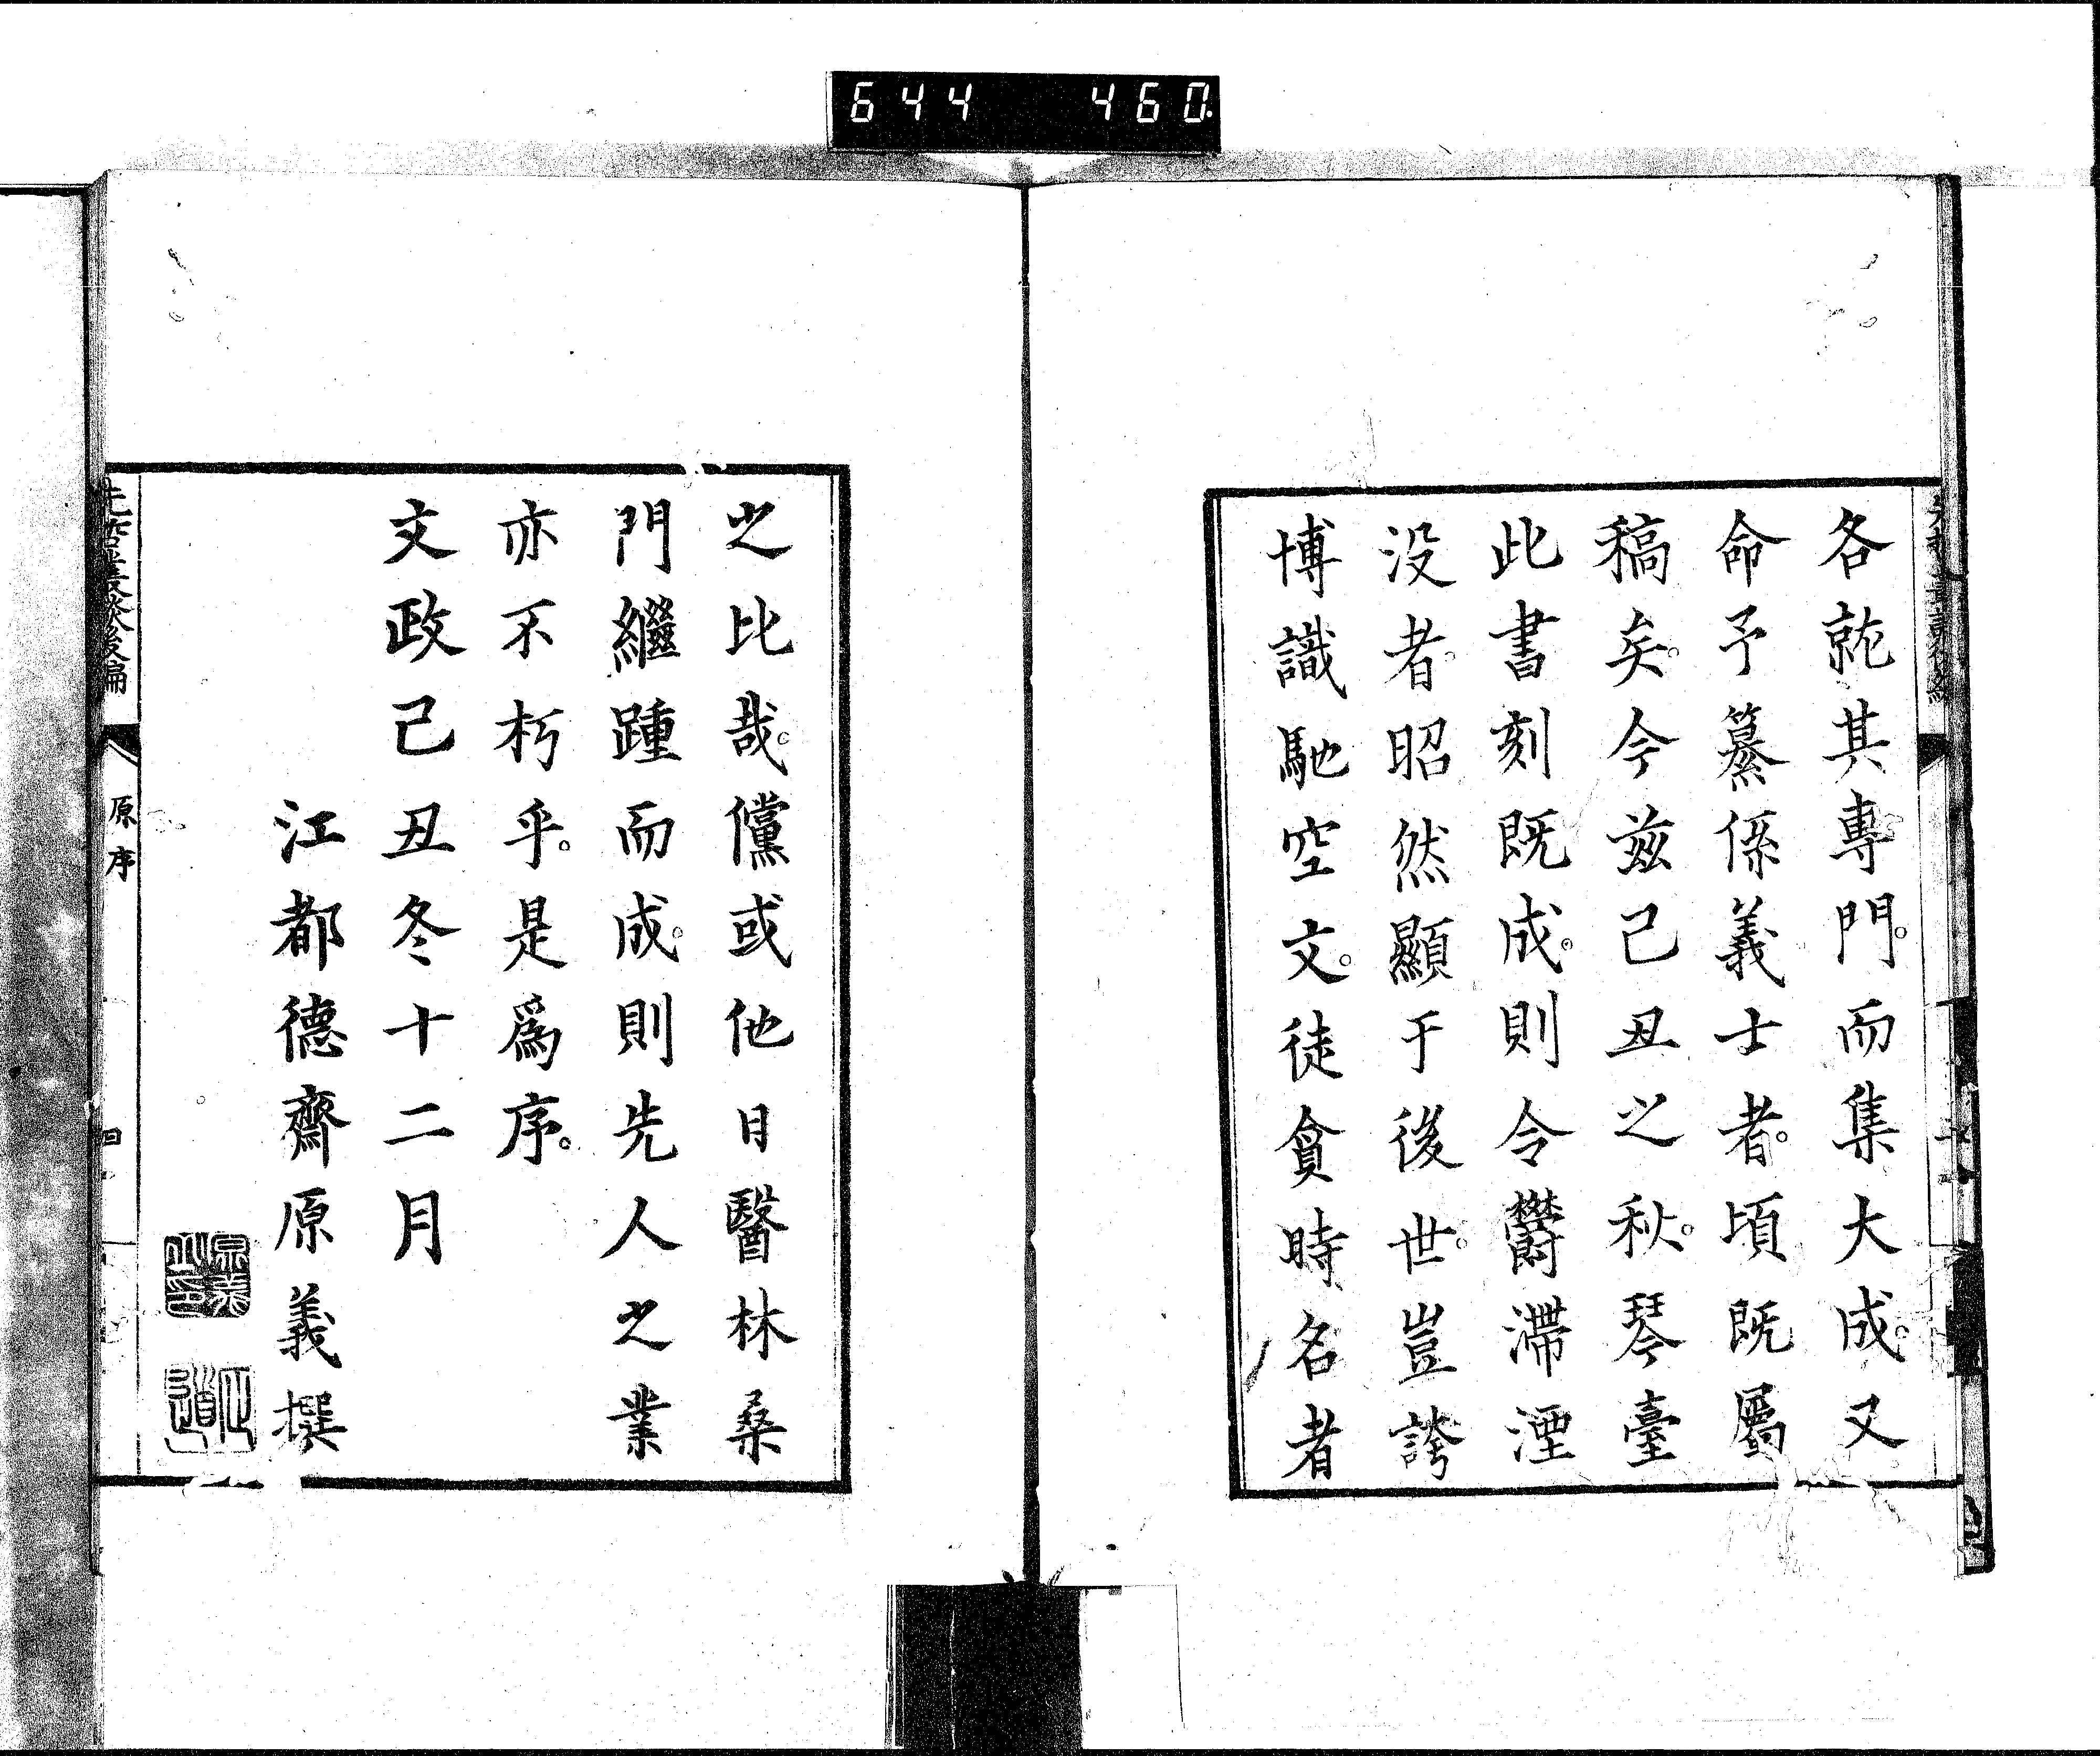 644 460
各就其專門。而集大成。又
命予纂係義士者。頃既屬
稿矣。今茲己丑之秋。琴臺
此書刻既成。則令鬱滯湮
没者。昭然顯于後世。豈誇
博識馳空文。徒貪時名者
之比哉。儻或他日醫林桑
門繼踵而成。則先人之業
亦不朽乎。是爲序。
文政己丑冬十二月
江都德齋原義撰
先哲叢談後編
原序
四